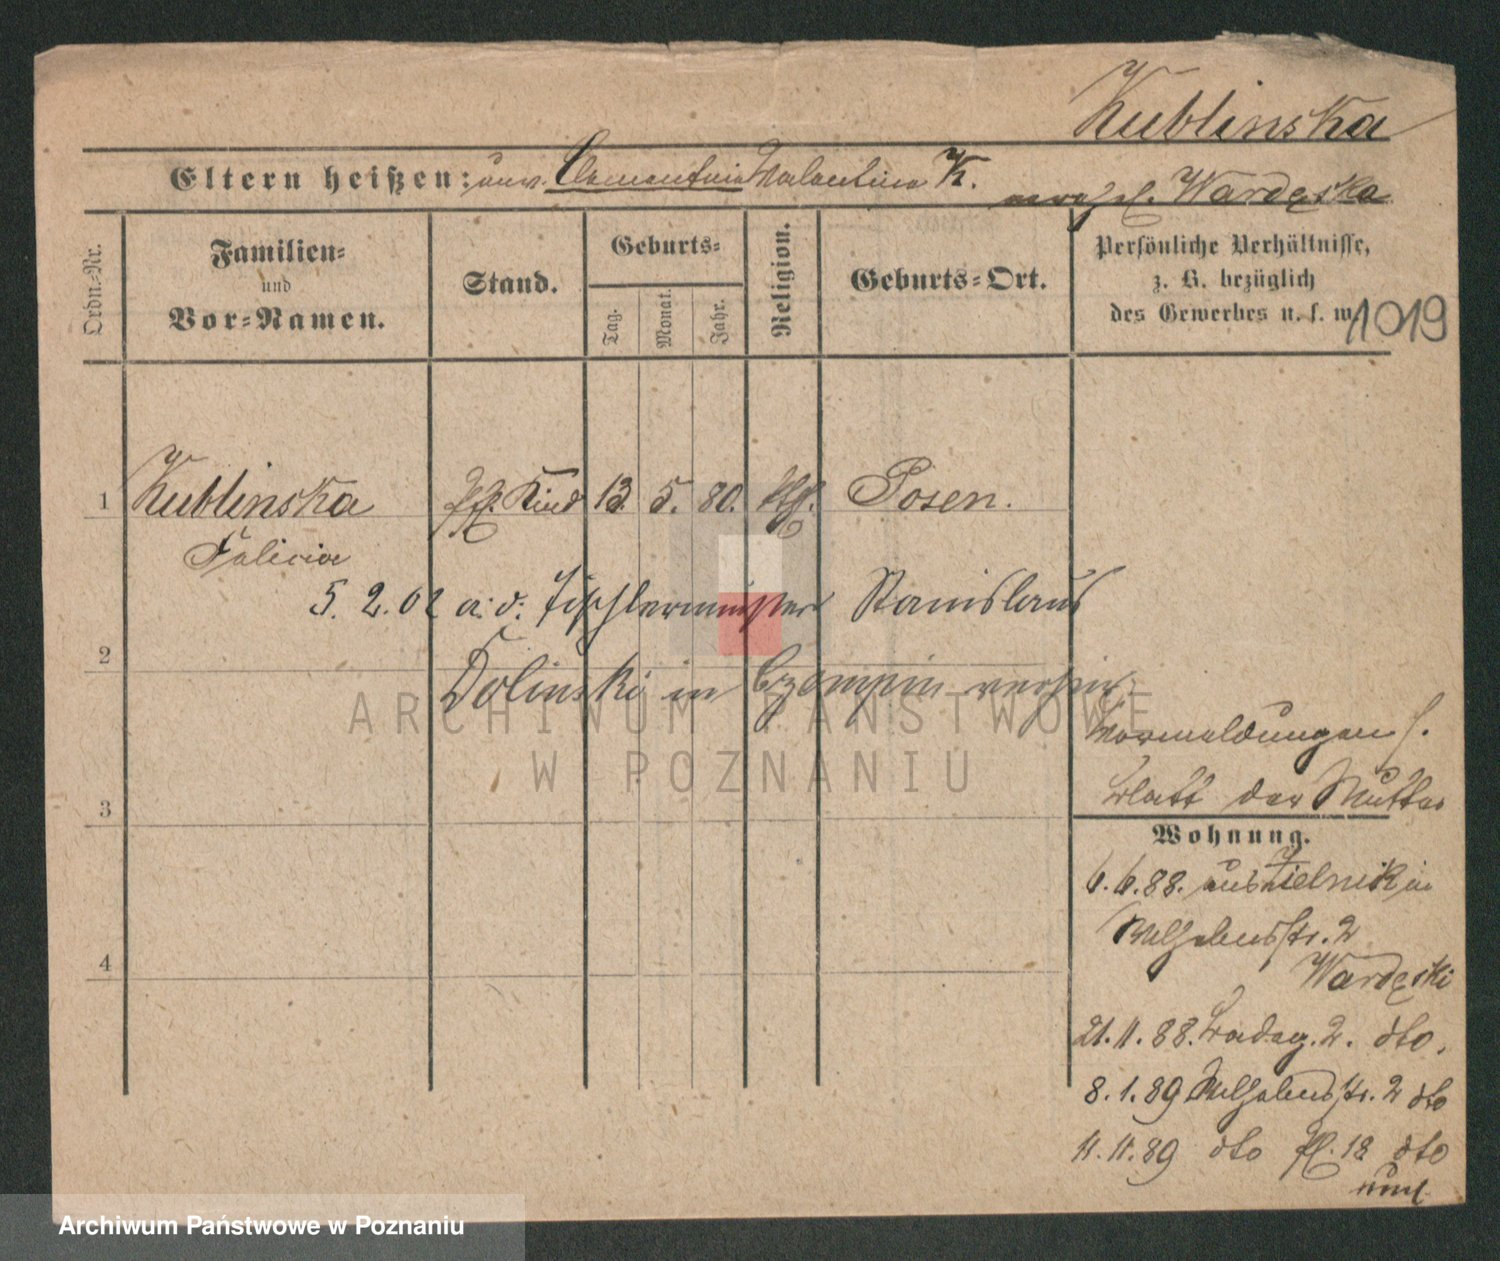 Kublinska
Eltern heißen: unv. Clementine Valentina K.
verehel. Wardęska
Ordn.-Nr.
Familien-
und
Vor-Namen.
Stand.
Geburts-
Tag.
Monat.
Jahr.
Religion.
Geburts-Ort.
Persönliche Verhältnisse,
z. B. bezüglich
des Gewerbes u. s. w.
1019
1 Kublinska Kind 13. 5. 80. kth. Posen.
Felicia
5. 2. 02 a. d. Tischlermeister Stanislaus
2
Dolinski in Czempin verheir.
Vormeldungen s.
Blatt der Mutter
3
Wohnung.
6.6.88. aus Zielnik in
Wilhelmstr. 2
Wardęski
4
21.11.88. 2. dto.
8.1.89 Wilhelmstr. 2 dto
11.11.89 dto Pl. 18 dto
ARCHIWUM PAŃSTWOWE
W POZNANIU
Archiwum Państwowe w Poznaniu